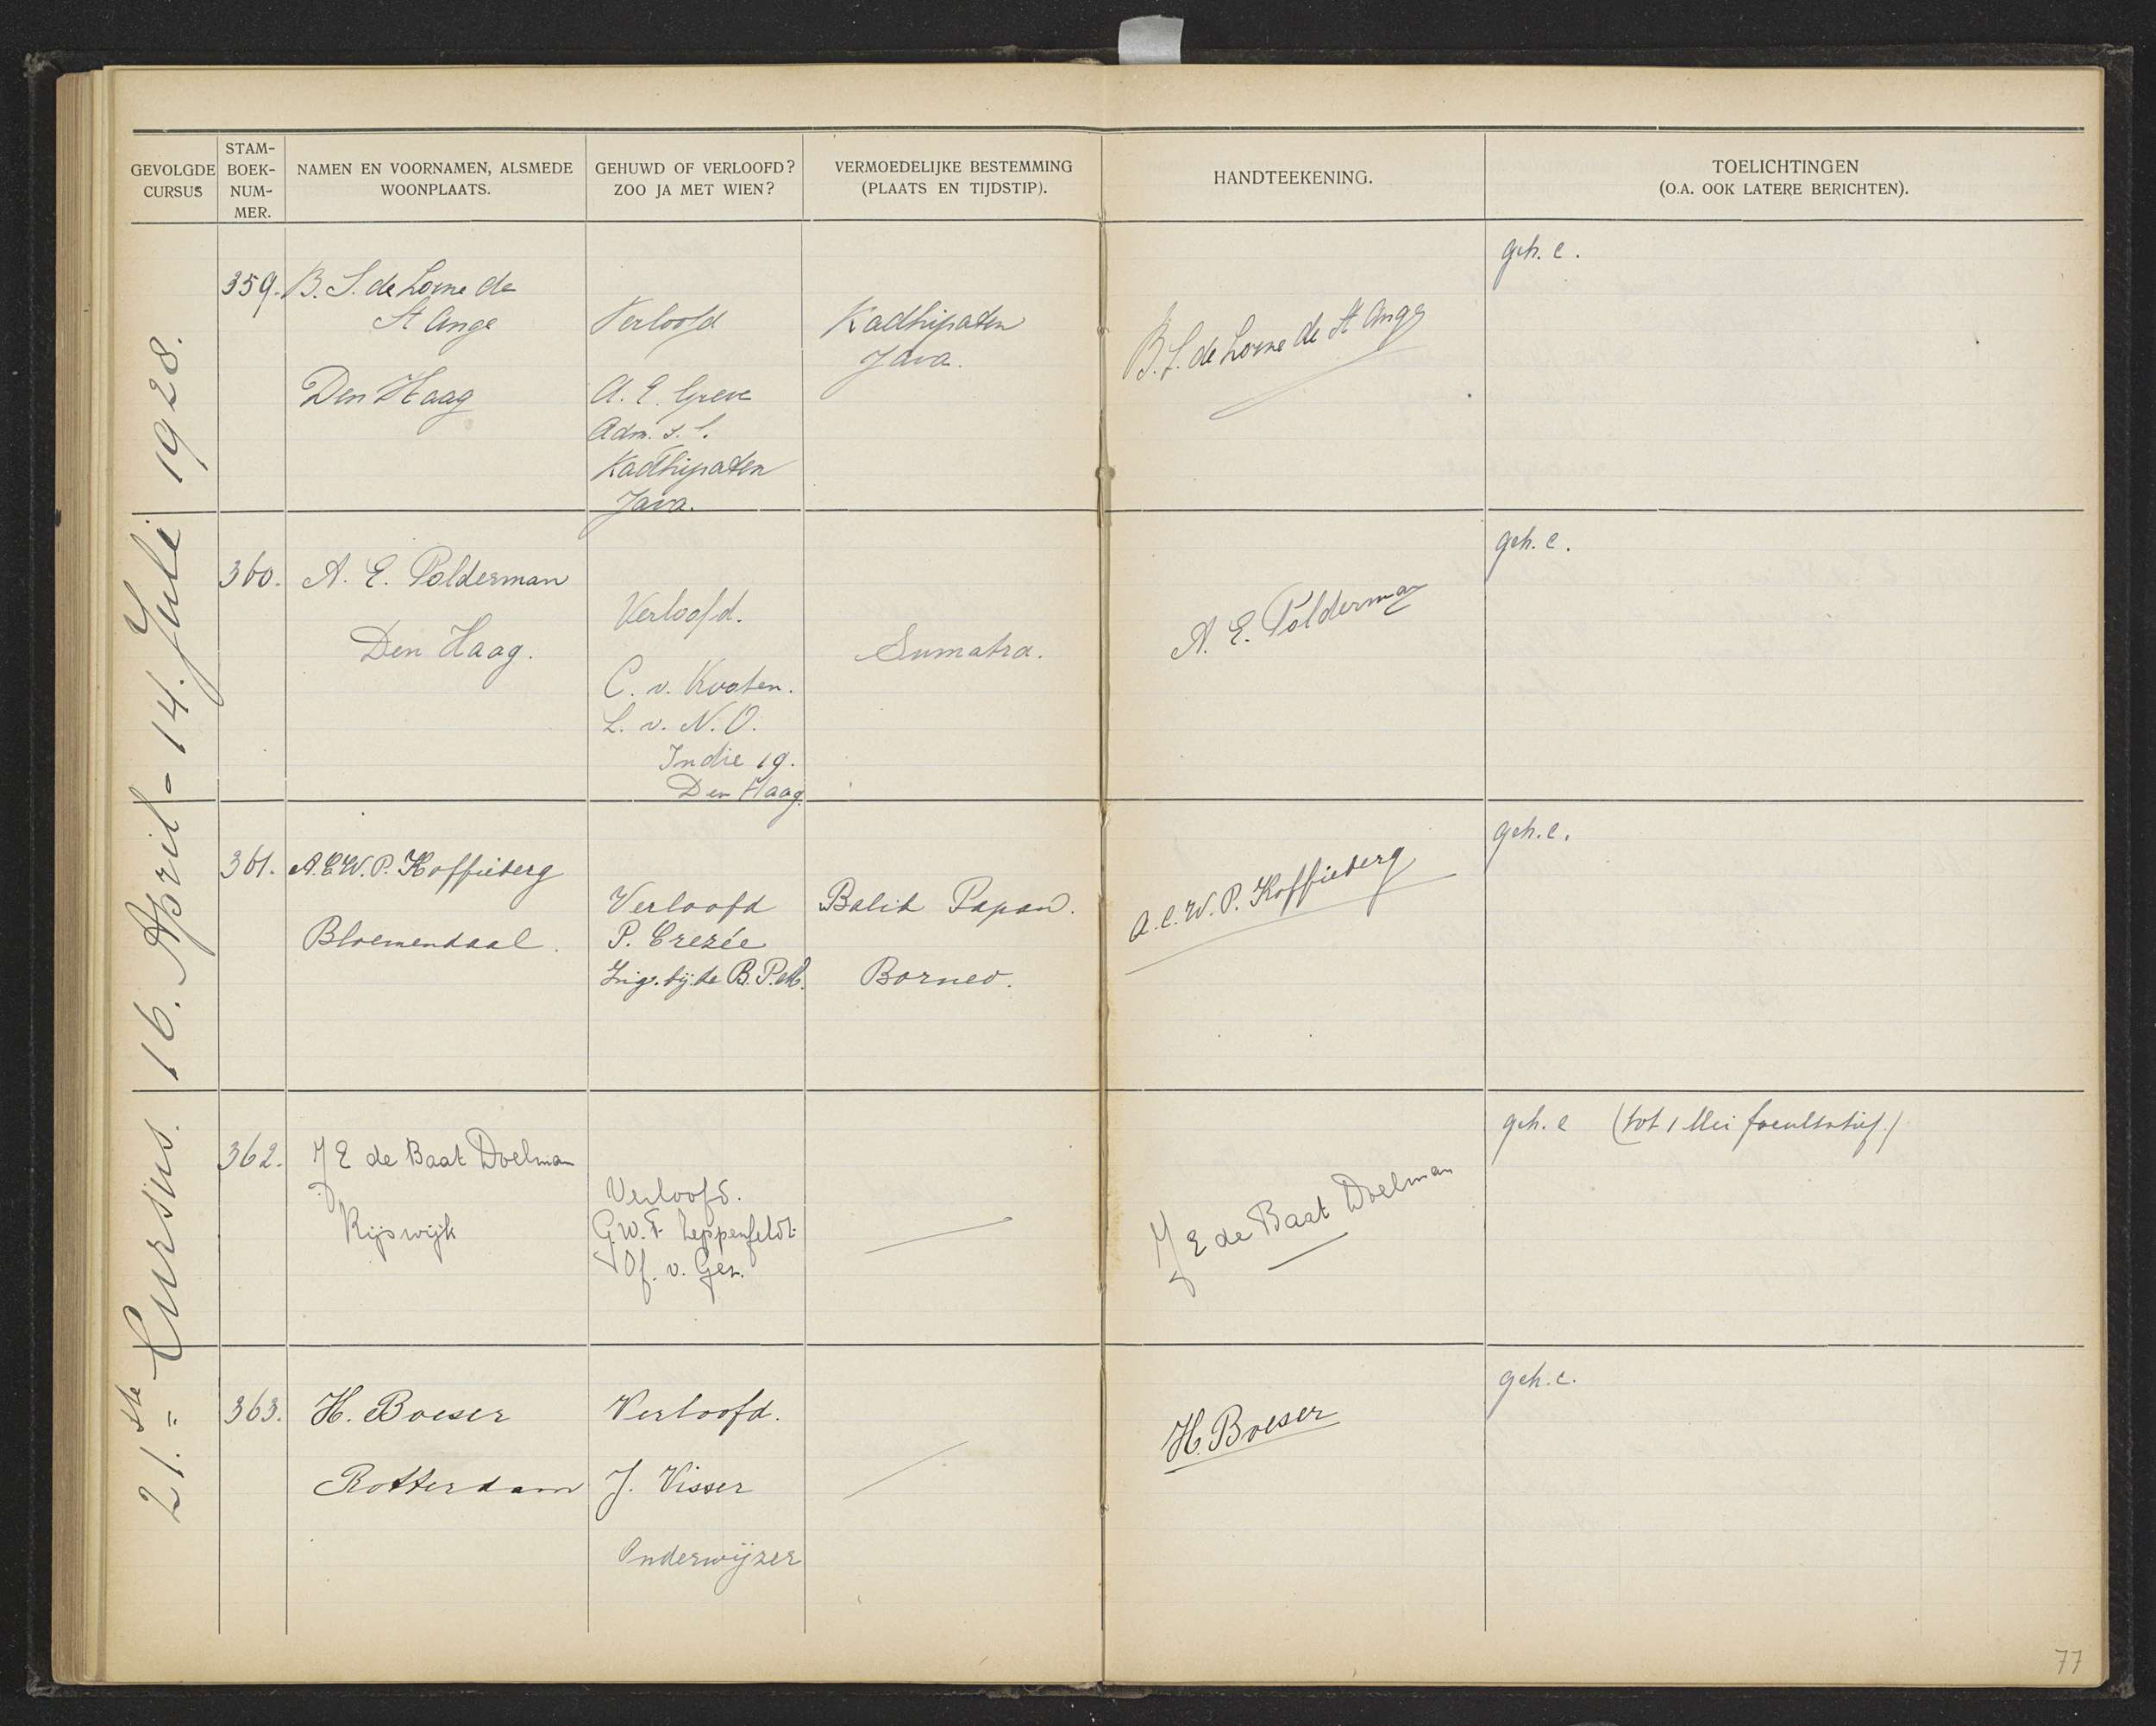 GEVOLGDE CURSUS
STAM-BOEK-NUM-MER.
NAMEN EN VOORNAMEN, ALSMEDE WOONPLAATS.
GEHUWD OF VERLOOFD? ZOO JA MET WIEN?
VERMOEDELIJKE BESTEMMING (PLAATS EN TIJDSTIP).
HANDTEEKENING.
TOELICHTINGEN (O.A. OOK LATERE BERICHTEN).
21.ste Cursus. 16. April - 14. Juli 1928.
359. B. S. de Lorne de
St Ange
Den Haag
Verloofd
A. E. Greve
Adm. s. f.
Kadhipaten
Java.
Kadhipaten
Java.
B. S. de Lorne de St Ange
geh. c.
360. A. E. Polderman
Den Haag.
Verloofd.
C. v. Kooten.
L. v. N. O.
Indie 19.
Den Haag.
Sumatra.
A. E. Polderman
geh. c.
361. A.C.W.P. Koffieberg
Bloemendaal.
Verloofd
P. Crezée
Ing. bij de B.P.M.
Balik Papan.
Borneo.
A.C.W.P. Koffieberg
geh. c.
362. J E de Baat Doelman
Rijswijk
Verloofd.
G.W.F. Leppenfeldt.
Of. v. Gez.
J E de Baat Doelman
geh. c (tot 1 Mei facultatief.)
363. H. Boeser
Rotterdam
Verloofd.
J. Visser
Onderwijzer
H. Boeser
geh. c.
77